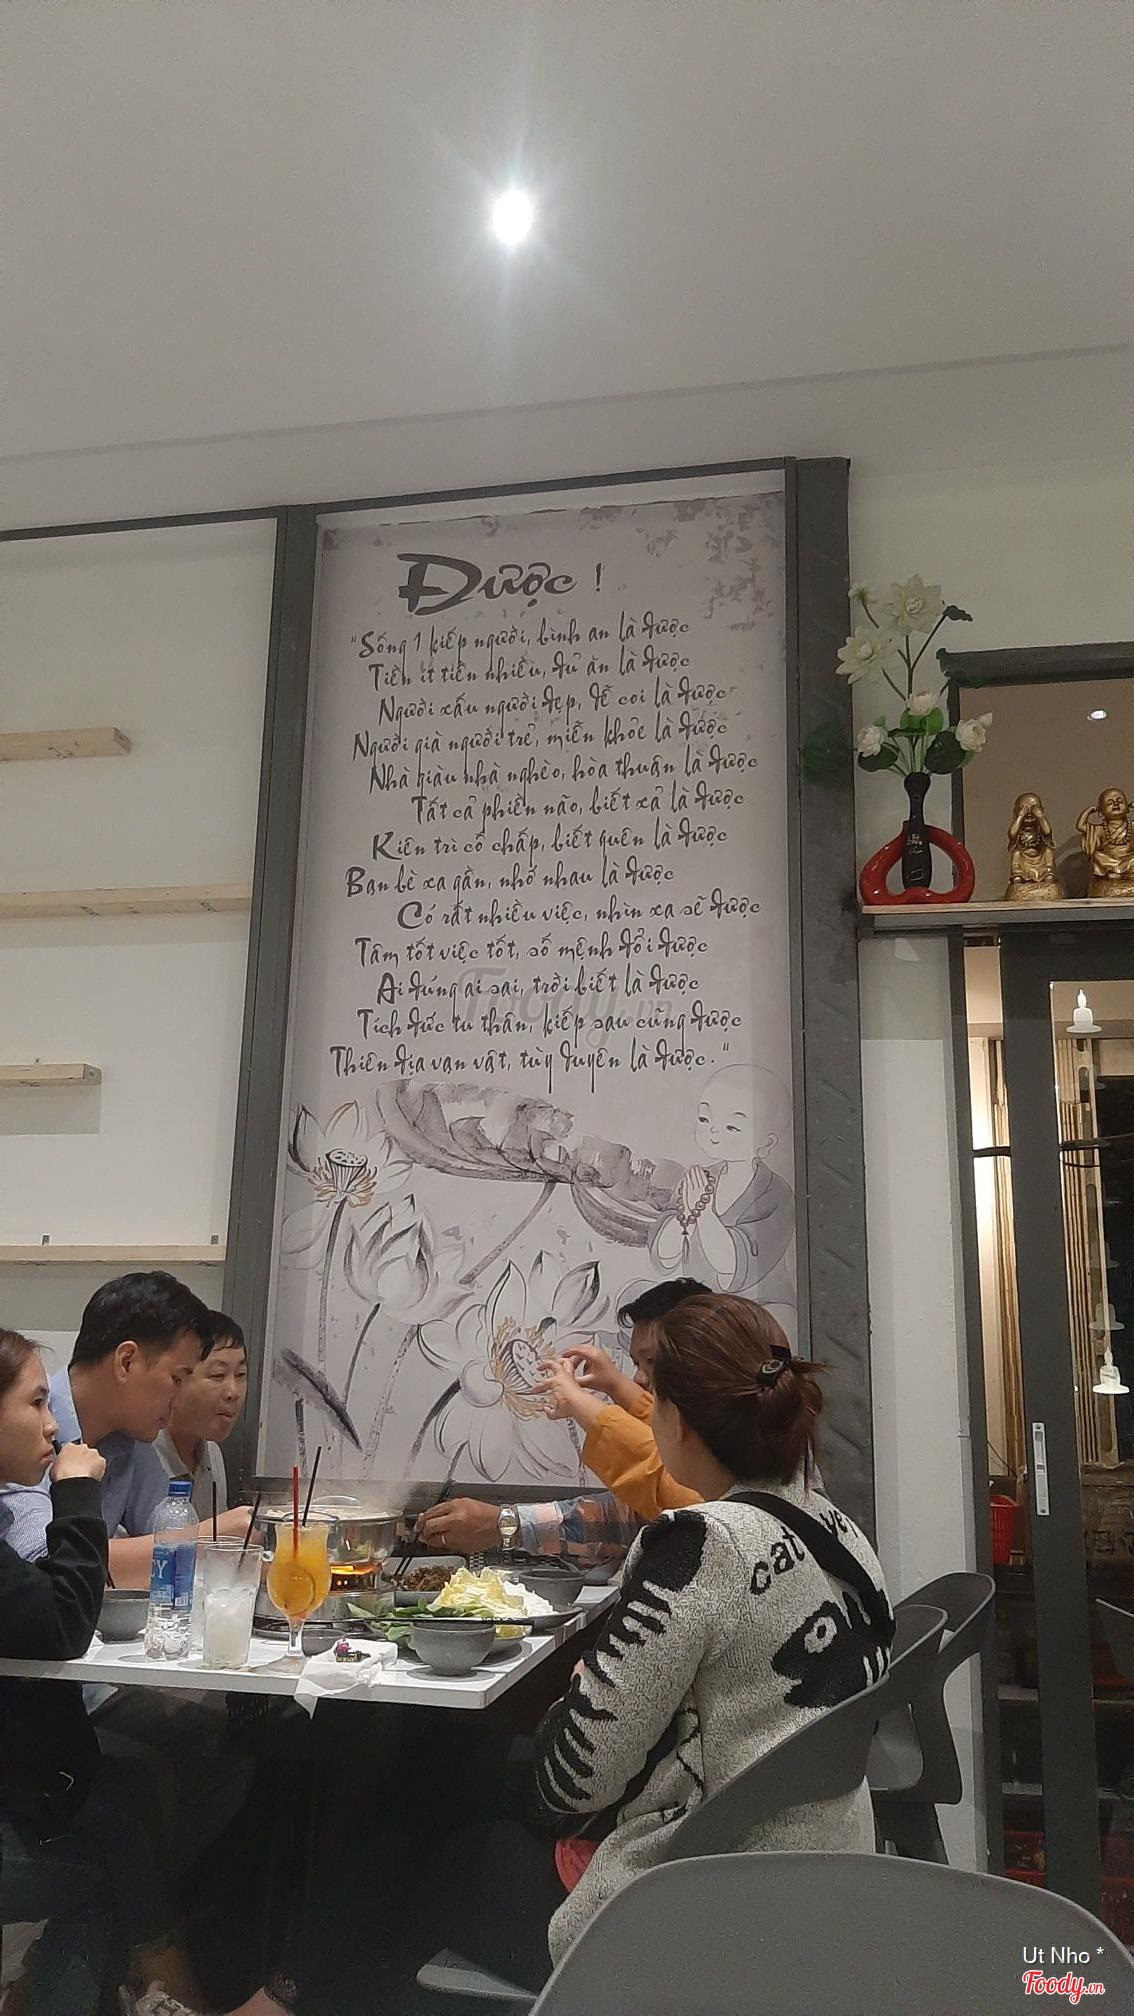 Được !
"Sống 1 kiếp người, bình an là được
Tiền ít tiền nhiều, đủ ăn là được
Người xấu người đẹp, dễ coi là được
Người già người trẻ, miễn khỏe là được
Nhà giàu nhà nghèo, hòa thuận là được
Tất cả phiền não, biết xả là được
Kiên trì cố chấp, biết quên là được
Bạn bè xa gần, nhớ nhau là được
Có rất nhiều việc, nhìn xa sẽ được
Tâm tốt việc tốt, số mệnh đổi được
Ai đúng ai sai, trời biết là được
Tích đức tu thân, kiếp sau cũng được
Thiên địa vạn vật, tùy duyên là được."
Foody.vn
cat
Ut Nho *
Foody.vn